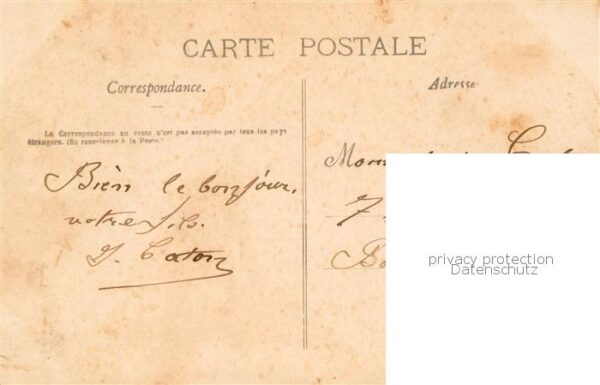 CARTE POSTALE
Correspondance.
Adresse
La Correspondance au recto n'est pas acceptée par tous les pays
étrangers. (Se renseigner à la Poste.)
Bien le bonjour,
votre fils.
7
privacy protection
Datenschutz